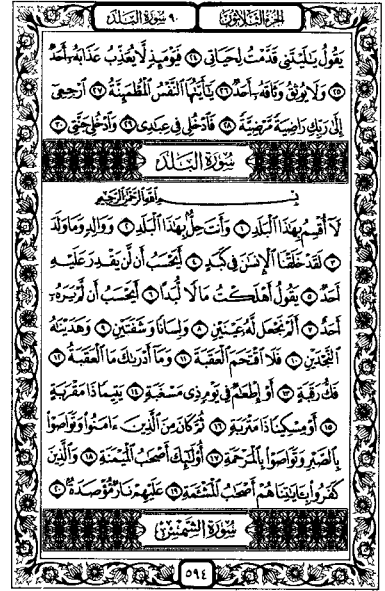 الجزء الثلاثون ٩٠ سورة البلد
يَقُولُ يَـٰلَيْتَنِى قَدَّمْتُ لِحَيَاتِى ۝٢٤ فَيَوْمَئِذٍ لَّا يُعَذِّبُ عَذَابَهُۥٓ أَحَدٌ
۝٢٥ وَلَا يُوثِقُ وَثَاقَهُۥٓ أَحَدٌ ۝٢٦ يَـٰٓأَيَّتُهَا ٱلنَّفْسُ ٱلْمُطْمَئِنَّةُ ۝٢٧ ٱرْجِعِىٓ
إِلَىٰ رَبِّكِ رَاضِيَةً مَّرْضِيَّةً ۝٢٨ فَٱدْخُلِى فِى عِبَـٰدِى ۝٢٩ وَٱدْخُلِى جَنَّتِى ۝٣٠
سورة البلد
بِسْمِ ٱللَّهِ ٱلرَّحْمَـٰنِ ٱلرَّحِيمِ
لَآ أُقْسِمُ بِهَـٰذَا ٱلْبَلَدِ ۝١ وَأَنتَ حِلٌّۢ بِهَـٰذَا ٱلْبَلَدِ ۝٢ وَوَالِدٍ وَمَا وَلَدَ
۝٣ لَقَدْ خَلَقْنَا ٱلْإِنسَـٰنَ فِى كَبَدٍ ۝٤ أَيَحْسَبُ أَن لَّن يَقْدِرَ عَلَيْهِ
أَحَدٌ ۝٥ يَقُولُ أَهْلَكْتُ مَالًا لُّبَدًا ۝٦ أَيَحْسَبُ أَن لَّمْ يَرَهُۥٓ
أَحَدٌ ۝٧ أَلَمْ نَجْعَل لَّهُۥ عَيْنَيْنِ ۝٨ وَلِسَانًا وَشَفَتَيْنِ ۝٩ وَهَدَيْنَـٰهُ
ٱلنَّجْدَيْنِ ۝١٠ فَلَا ٱقْتَحَمَ ٱلْعَقَبَةَ ۝١١ وَمَآ أَدْرَىٰكَ مَا ٱلْعَقَبَةُ ۝١٢
فَكُّ رَقَبَةٍ ۝١٣ أَوْ إِطْعَـٰمٌ فِى يَوْمٍ ذِى مَسْغَبَةٍ ۝١٤ يَتِيمًا ذَا مَقْرَبَةٍ
۝١٥ أَوْ مِسْكِينًا ذَا مَتْرَبَةٍ ۝١٦ ثُمَّ كَانَ مِنَ ٱلَّذِينَ ءَامَنُوا۟ وَتَوَاصَوْا۟
بِٱلصَّبْرِ وَتَوَاصَوْا۟ بِٱلْمَرْحَمَةِ ۝١٧ أُو۟لَـٰٓئِكَ أَصْحَـٰبُ ٱلْمَيْمَنَةِ ۝١٨ وَٱلَّذِينَ
كَفَرُوا۟ بِـَٔايَـٰتِنَا هُمْ أَصْحَـٰبُ ٱلْمَشْـَٔمَةِ ۝١٩ عَلَيْهِمْ نَارٌ مُّؤْصَدَةٌۢ ۝٢٠
سورة الشمس
٥٩٤